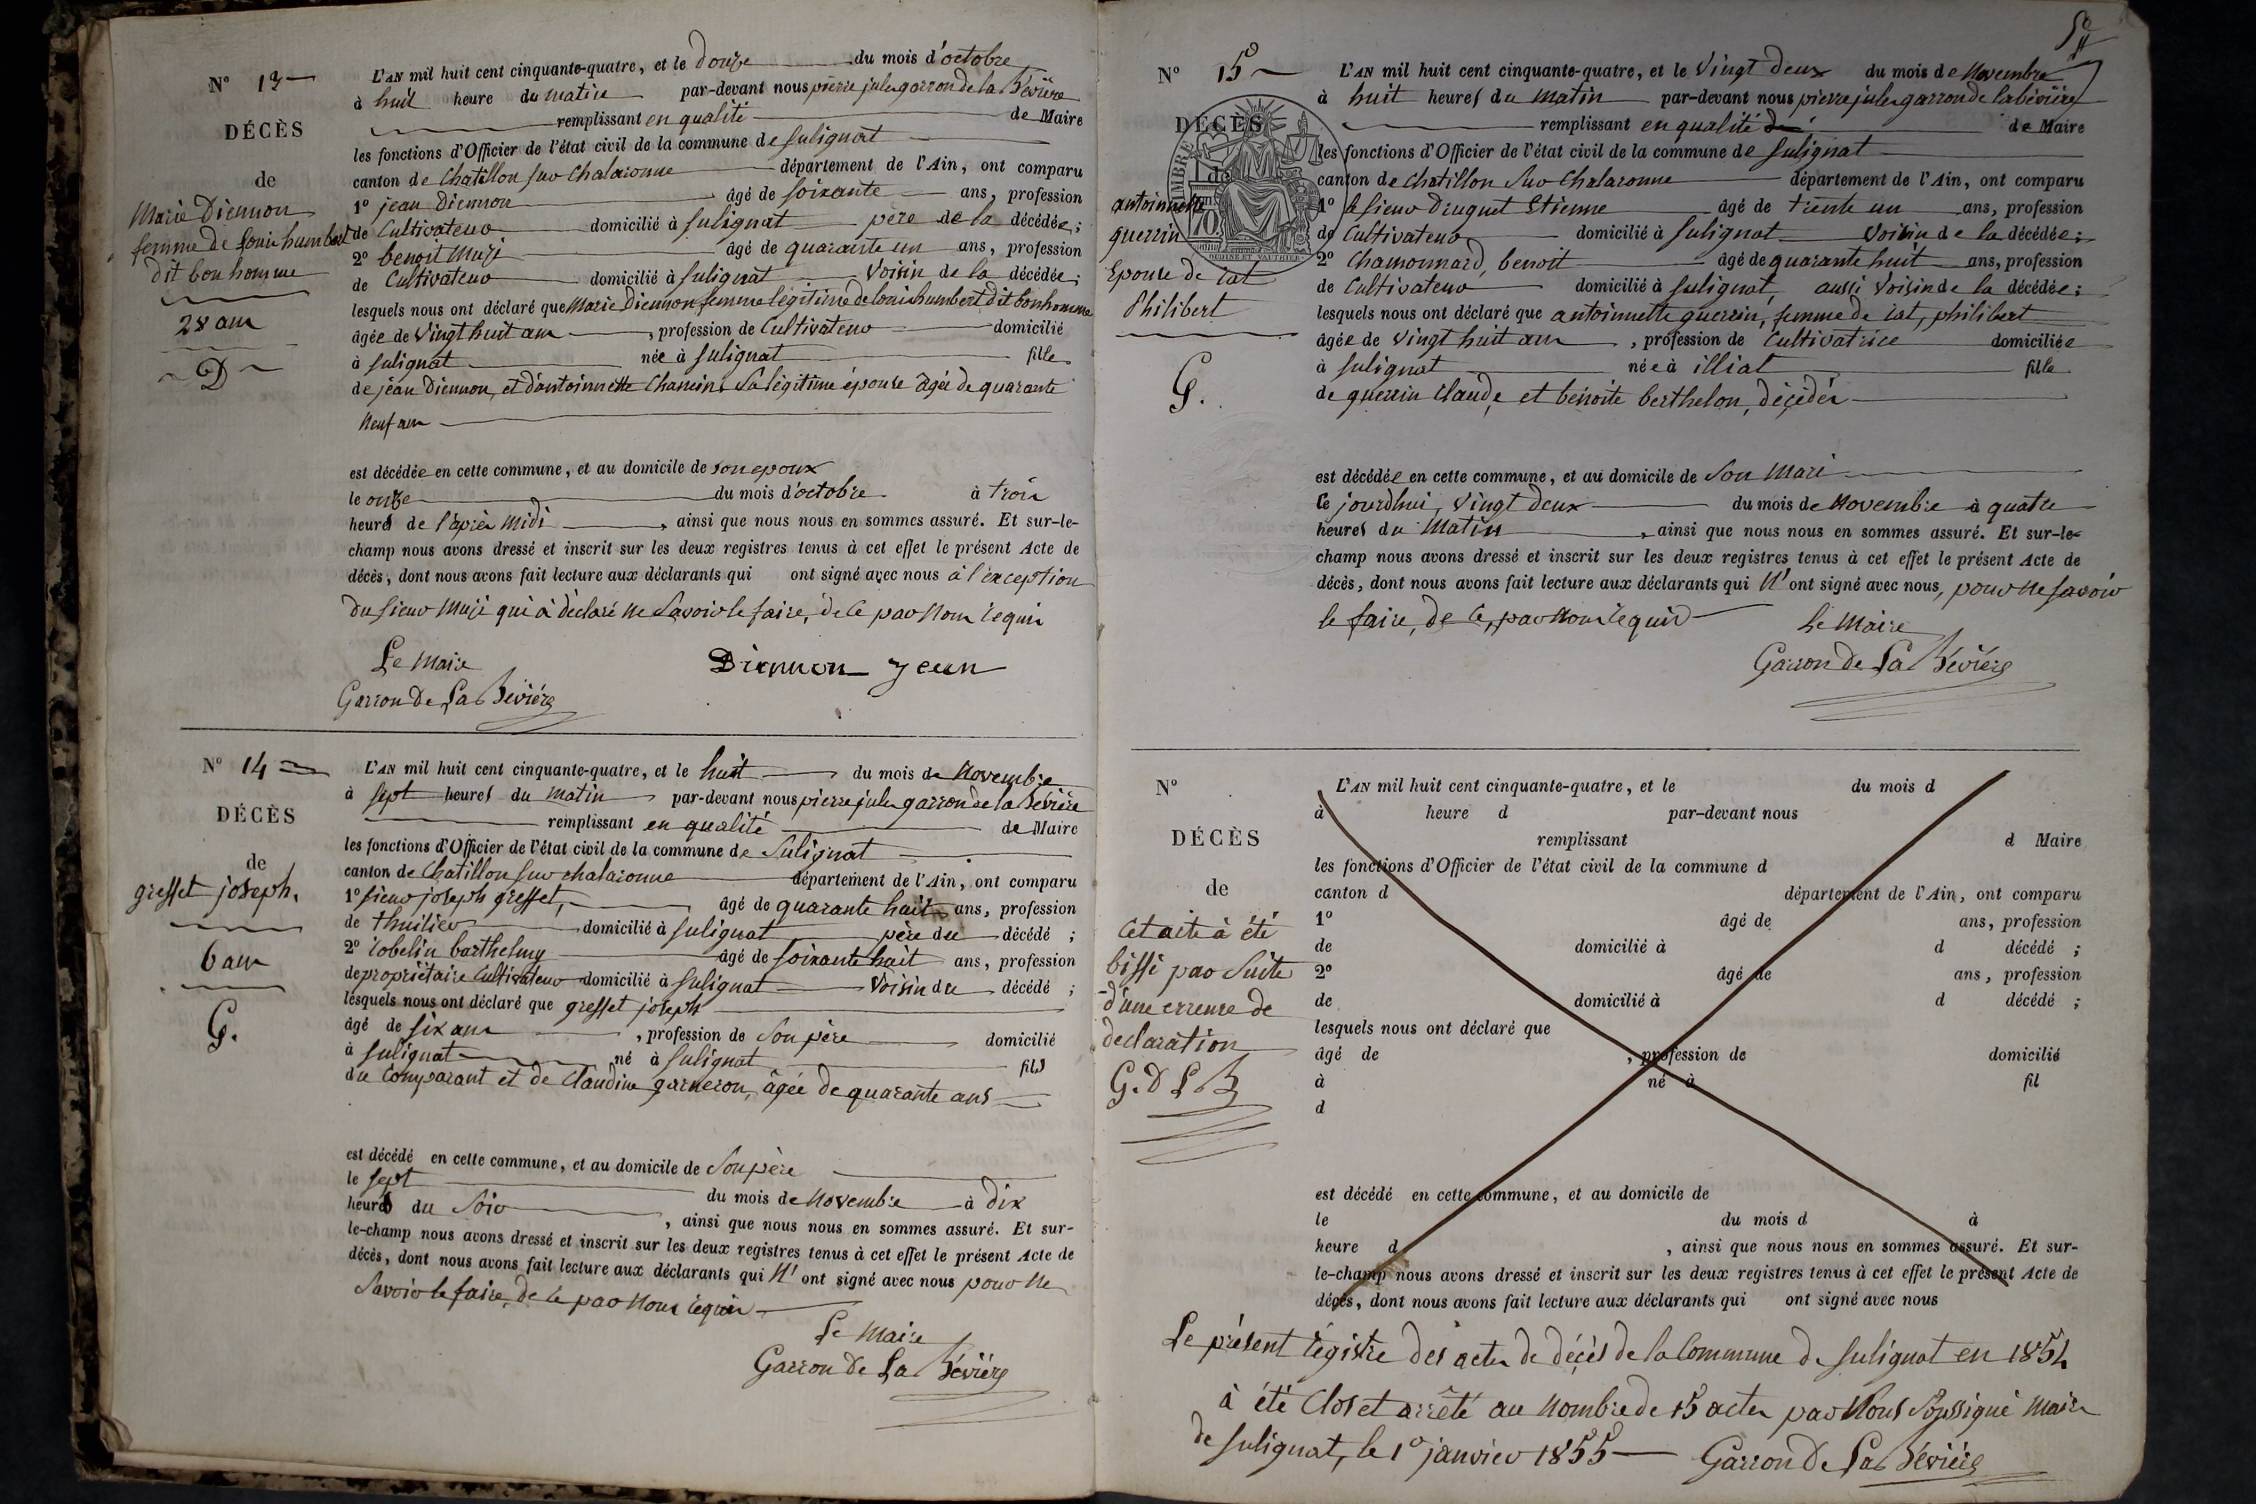 N° 13
DÉCÈS
de
Marie Diennon
femme de Louis humbert
dit bon homme
28 ans
D
L'AN mil huit cent cinquante-quatre, et le douze du mois d'octobre
à huit heure du matin par-devant nous pierre jules garron de la Bévière
remplissant en qualité de Maire
les fonctions d'Officier de l'état civil de la commune de Sulignat
canton de Chatillon sur Chalaronne département de l'Ain, ont comparu
1° jean Diennon âgé de soixante ans, profession
de Cultivateur domicilié à Sulignat père de la décédée;
2° benoit Muzi âgé de quarante un ans, profession
de Cultivateur domicilié à Sulignat Voisin de la décédée;
lesquels nous ont déclaré que Marie Diennon femme légitime de louis humbert dit bonhomme
âgée de Vingt huit ans, profession de Cultivateur domicilié
à Sulignat née à Sulignat fille
de jean Diennon, et d'antoinette Chanin, Sa légitime épouse âgée de quarante
neuf ans
est décédée en cette commune, et au domicile de son epoux
le onze du mois d'octobre à trois
heures de l'après midi, ainsi que nous nous en sommes assuré. Et sur-le-
champ nous avons dressé et inscrit sur les deux registres tenus à cet effet le présent Acte de
décès, dont nous avons fait lecture aux déclarants qui ont signé avec nous à l'exception
du sieur Muzi qui à déclaré ne Savoir le faire, de ce par Nous requis
Le Maire
Garron De La Bévière
Diennon Jean
N° 14
DÉCÈS
de
greffet joseph.
6 ans
G.
L'AN mil huit cent cinquante-quatre, et le huit du mois de Novembre
à sept heures du matin par-devant nous pierre jules garron de la Bévière
remplissant en qualité de Maire
les fonctions d'Officier de l'état civil de la commune de Sulignat
canton de Chatillon sur chalaronne département de l'Ain, ont comparu
1° sieur joseph greffet, âgé de quarante huit ans, profession
de thuilier domicilié à Sulignat père du décédé;
2° robelin barthelmy âgé de soixante huit ans, profession
de propriétaire Cultivateur domicilié à Sulignat Voisin du décédé;
lesquels nous ont déclaré que greffet joseph
âgé de six ans, profession de Son père domicilié
à Sulignat né à Sulignat fils
du Comparant et de Claudine garneron, âgée de quarante ans
est décédé en cette commune, et au domicile de Son père
le sept du mois de Novembre à dix
heures du Soir, ainsi que nous nous en sommes assuré. Et sur-
le-champ nous avons dressé et inscrit sur les deux registres tenus à cet effet le présent Acte de
décès, dont nous avons fait lecture aux déclarants qui N'ont signé avec nous pour Ne
Savoir le faire, de ce par Nous requis
Le Maire
Garron De La Bévière
N° 15
DÉCÈS
de
antoinette
guerrin
Epouse de
Philibert
G.
L'AN mil huit cent cinquante-quatre, et le Vingt deux du mois de Novembre
à huit heures du Matin par-devant nous pierre jules garron de la bévière
remplissant en qualité de Maire
les fonctions d'Officier de l'état civil de la commune de Sulignat
canton de Chatillon sur Chalaronne département de l'Ain, ont comparu
1° le sieur Druguet Etienne âgé de trente un ans, profession
de Cultivateur domicilié à Sulignat Voisin de la décédée;
2° Chamonnard, benoit âgé de quarante huit ans, profession
de Cultivateur domicilié à Sulignat, aussi Voisin de la décédée;
lesquels nous ont déclaré que antoinette guerrin, femme de philibert
âgée de Vingt huit ans, profession de Cultivatrice domiciliée
à Sulignat née à illiat fille
de guerrin Claude et benoite berthelon, décédés
est décédée en cette commune, et au domicile de Son Mari
le jourdhui, Vingt deux du mois de Novembre à quatre
heures du Matin, ainsi que nous nous en sommes assuré. Et sur-le-
champ nous avons dressé et inscrit sur les deux registres tenus à cet effet le présent Acte de
décès, dont nous avons fait lecture aux déclarants qui N'ont signé avec nous, pour Ne savoir
le faire, de ce, par Nous requis
Le Maire
Garron De La Bévière
N°
DÉCÈS
de
Cet acte à été
biffé par Suite
d'une erreure de
declaration
G. D L B
L'AN mil huit cent cinquante-quatre, et le du mois d
à heure d par-devant nous
remplissant d Maire
les fonctions d'Officier de l'état civil de la commune d
canton d département de l'Ain, ont comparu
1° âgé de ans, profession
de domicilié à d décédé ;
2° âgé de ans, profession
de domicilié à d décédé ;
lesquels nous ont déclaré que
âgé de , profession de domicilié
à né à fil
d
est décédé en cette commune, et au domicile de
le du mois d à
heure d , ainsi que nous nous en sommes assuré. Et sur-
le-champ nous avons dressé et inscrit sur les deux registres tenus à cet effet le présent Acte de
décès, dont nous avons fait lecture aux déclarants qui ont signé avec nous
Le présent régistre des actes de décès de la Commune de Sulignat en 1854
à été Clos et arrêté au Nombre de 15 actes par Nous Soussigné Maire
de Sulignat, le 1° janvier 1855 Garron De La Bévière